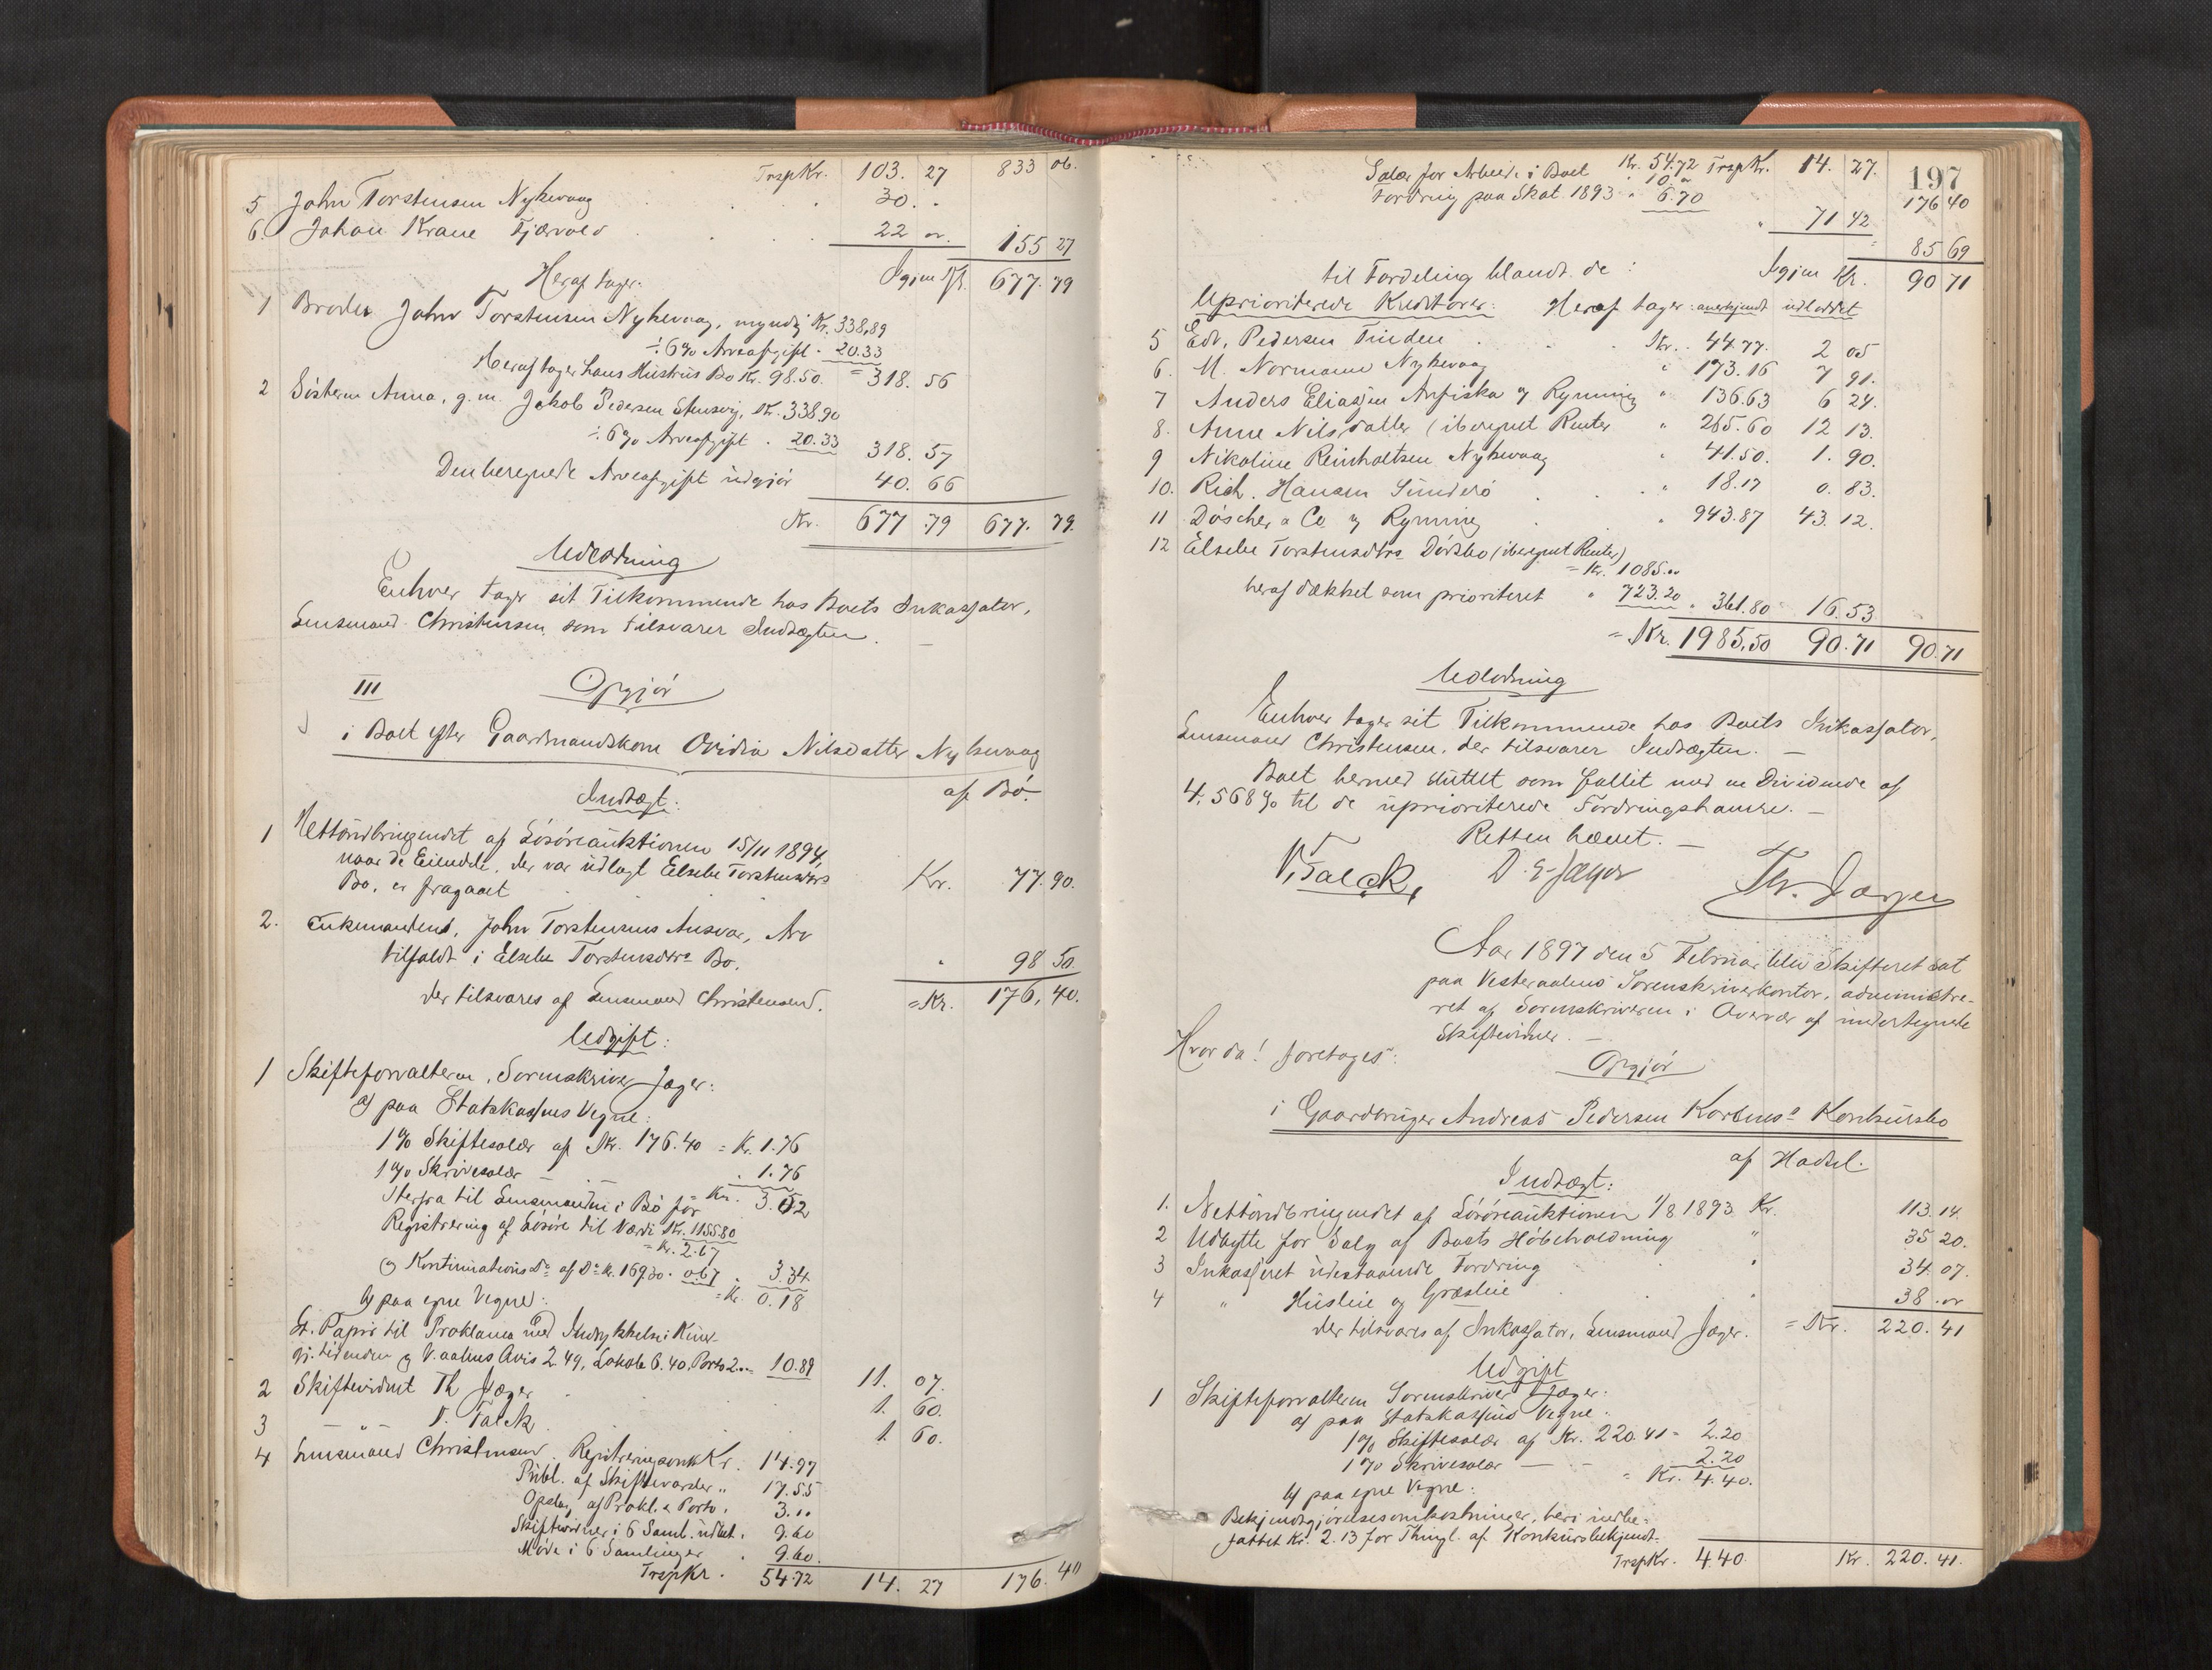 TrspKr. 103. 27 833 06.
5 John Torstensen Nykvaag . . . 30. "
6. Johan Krane Fjærvold . . . 22 " 155 27
Heraf tager: Igjen Kr. 677. 79
1 Broder John Torstensen Nykvaag, myndig Kr. 338,89
÷ 6% Arveafgift . 20.33
Heraf tager hans Hustrus Bo Kr. 98.50. = 318. 56
2 Søsteren Anna, g.m. Jakob Pedersen Stensvig, Kr. 338.90
÷ 6% Arveafgift . 20.33 318. 57
Den beregnede Arveafgift udgjør 40. 66
Kr. 677 .79 677. 79.
Udlodning
Enhver tager sit Tilkommende hos Boets Inkassator,
Lensmand Christensen som tilsvarer Indtægten. —
III Opgjør
i Boet efter Gaardmandskone Ovidia Nilsdatter Nykvaag
af Bø.
Indtægt:
1 Nettoudbringendet af Løsøreauktionen 15/11 1894,
naar de Eiendele, der var udlagt Elsebe Torstensdtrs
Bo, er fragaaet Kr. 77.90.
2. Enkemandens, John Torstensens Ansvar, Arv
tilfaldt i Elsebe Torstensdtrs Bo. " 98 50
der tilsvares af Lensmand Christensen. = Kr. 176, 40.
Udgift:
1 Skifteforvalteren, Sorenskriver Jæger:
a) paa Statskassens Vegne:
1% Skiftesalær af Kr. 176.40 = Kr. 1.76
1% Skrivesalær — . — . 1.76
= Kr. 3.52
Herfra til Lensmanden i Bø for
Registrering af Løsøre til Værdi Kr. 1155.80
= Kr. 2.67
og Kontinuations Do af Do Kr. 169.30 . 0.67 . 3.34
= Kr. 0.18
b) paa egne Vegne:
St. Papir til Proklama med Indrykkelse i Kund-
gj. tidenden og V.aalens Avis 2.49, Lokale 6.40, Porto 2.00 10.89 11. 07.
2 Skiftevidnet Th Jæger . . 1. 60.
3 — " — V. Falck . . 1. 60.
4 Lensmand Christensen Registreringsomk Kr. 14.97
Publ. af Skiftevarsler " 17.55
Opslag af Prokl. & Porto . 3. "
Skiftevidner i 6 Saml. udbet. . 9.60
Møde i 6 Samlinger . 9.60.
TrspKr. 54.72 14. 27 176. 40
197
Salær for Arbeide i Boet Kr. 54.72 TrspKr. 14. 27. 176 40
" 10. "
Fordring paa Skat 1893 " 6.70
" 71 42
85 69
til Fordeling blandt de: Igjen Kr. 90 71
Uprioriterede Kreditorer: Heraf tager: anerkjendt udloddet
5 Edv. Pedersen Tinden . . . Kr. 44.77. 2 05
6. M. Normann Nykvaag " 173.16 7 91.
7 Anders Eliassen Anfiska og Rynning " 136.63 6 24.
8. Anne Nilsdatter (iberegnet Renter " 265.60 12 13.
9 Nikoline Reinholtsen Nykvaag " 41.50. 1. 90.
10. Rich. Hansen Sunderø . . . " 18.17 0. 83.
11 Döscher & Co og Rynning . . " 943.87 43. 12.
12 Elsebe Torstensdtrs Dødsbo (iberegnet Renter)
= Kr. 1085. "
heraf dækket som prioriteret " 723.20 " 361.80 16.53
= Kr. 1985,50 90.71 90.71
Udlodning
Enhver tager sit Tilkommende hos Boets Inkassator,
Lensmand Christensen, der tilsvarer Indtægten. —
Boet hermed sluttet som fallit med en Dividende af
4,568% til de uprioriterede Fordringshavere. —
Retten hævet. —
V. Falck, D. E. Jæger Th. Jæger
Aar 1897 den 5 Februar blev Skifteret sat
paa Vesteraalens Sorenskriverkontor, administre-
ret af Sorenskriveren i Overvær af undertegnede
Skiftevidner. —
Hvor da! foretages:
Opgjør
i Gaardbruger Andreas Pedersen Kortnes' Konkursbo
af Hadsel.
Indtægt:
1. Nettoudbringendet af Løsøreauktionen 1/8 1893 Kr. 113.14.
2 Udbytte for Salg af Boets Høbeholdning " 35 20.
3 Inkasseret udestaaende Fordring " 34.07.
4 " Husleie og Græsleie . " 38. "
der tilsvares af Inkassator, Lensmand Jæger. = Kr. 220. 41
Udgift
1 Skifteforvalteren Sorenskriver Jæger:
a) paa Statskassens Vegne:
1% Skiftesalær af Kr. 220.41 = 2.20
1% Skrivesalær — . — 2.20
= Kr. 4.40.
b) paa egne Vegne:
Bekjendtgjørelsesomkostninger, heri indbe-
fattet Kr. 2.13 for Thingl. af Konkursbekjendt-
TrspKr. 4.40. Kr. 220. 41.